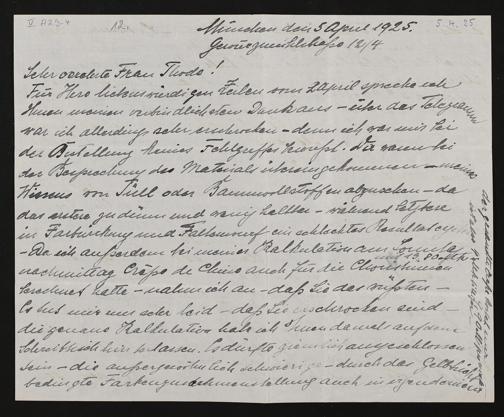 V A29-4
12.
5.4.25
München den 5 April 1925.
12/4
Sehr verehrte Frau Thode!
Für Ihre liebenswürdigen Zeilen vom 2 April spreche ich
Ihnen meinen verbindlichsten Dank aus – über das Telegramm
war ich allerdings sehr erschrocken – denn ich war mir bei
der Bestellung keines Fehlgriffes bewusst. Wir waren bei
der Besprechung des Materials übereingekommen – meines
Wissens von Tüll oder Baumwollstoffen abzusehen – da
das erstere zu dünn und wenig haltbar – während letztere
in Farbwirkung und Faltenwurf ein schlechtes Resultat
– Da ich außerdem bei meiner Kalkulation am Sonntag
nachmittag Crêpe de Chine auch für die
berechnet hatte – nahm ich an – daß Sie das wüßten –
Es tut mir nun sehr leid – daß Sie erschrocken sind –
die genaue Kalkulation habe ich Ihnen damals auf
hier gelassen. Es dürfte ziemlich ausgeschlossen
sein – die außergewöhnlich schwierige – durch das Gelblicht
bedingte Farbenzusammenstellung auch in irgendeinem